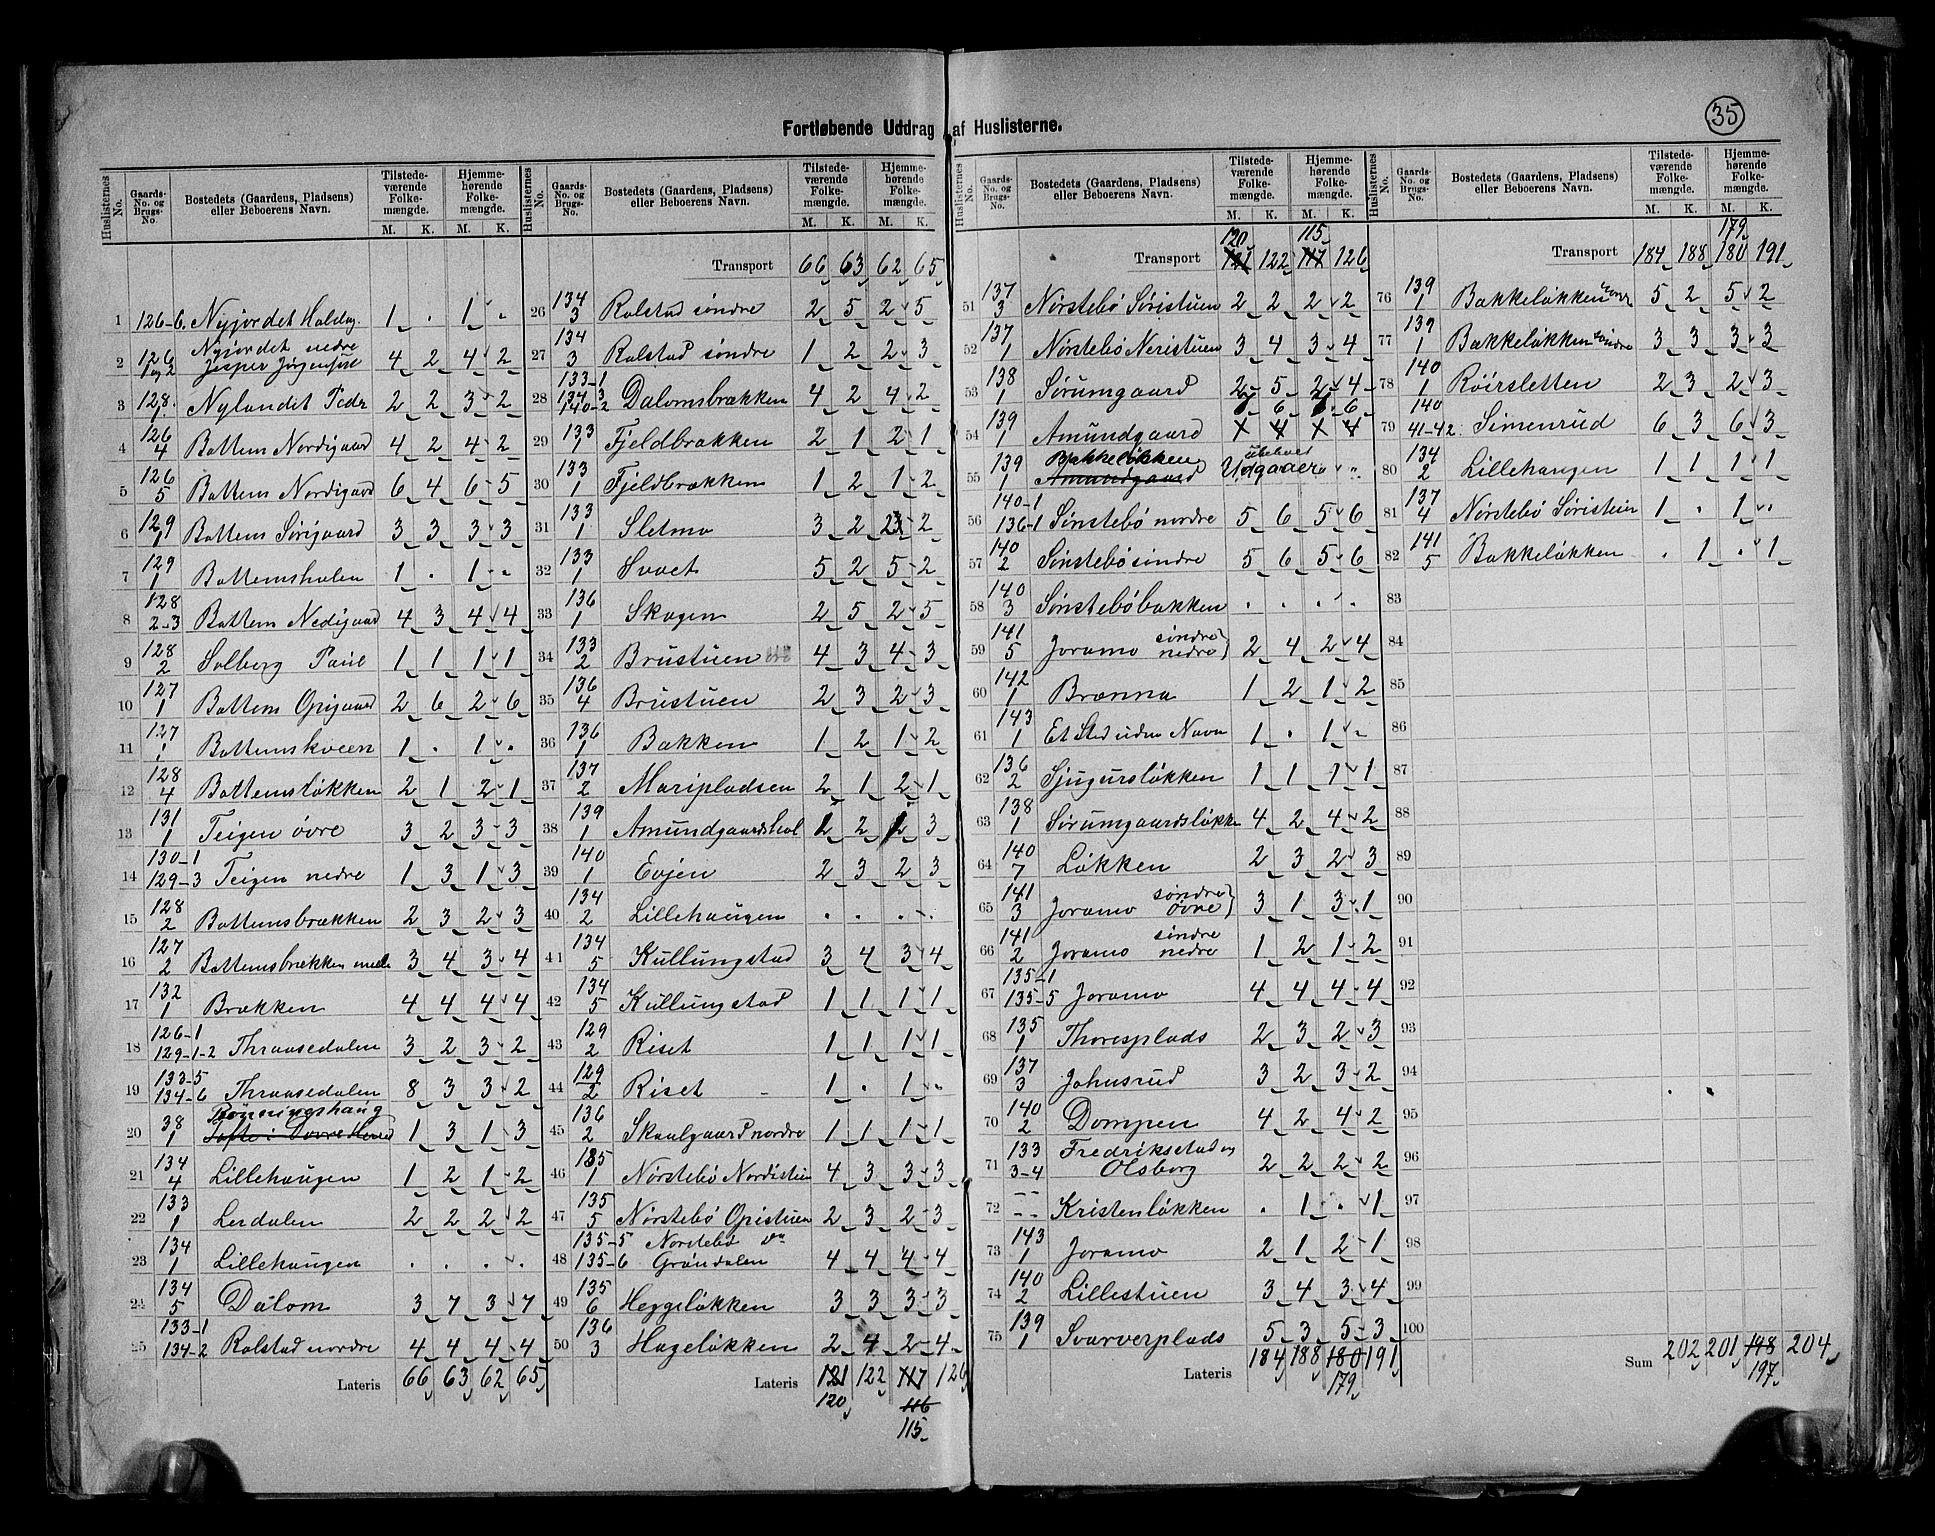 35
Fortløbende Uddrag af Huslisterne.
Huslisternes No. Gaards-No. og Brugs-No. Bostedets (Gaardens, Pladsens) eller Beboerens Navn. Tilstedeværende Folkemængde. M. K. Hjemmehørende Folkemængde. M. K.
1 126-6 Nyjordet 1 . 1 .
2 126 1 og 2 Nyjordet nedre Jesper Jørgensen 4 2 4 2
3 128 1 Nylandet Peder 2 2 3 2
4 126 4 Bottem Nordigaard 4 2 4 2
5 126 5 Bottem Nordigaard 6 4 6 5
6 129 1 Bottem Sørigaard 3 3 3 3
7 129 1 Bottemshalen 1 . 1 .
8 128 2-3 Bottem Nedigaard 4 3 4 4
9 128 2 Solberg 1 1 1 1
10 127 1 Bottem Opigaard 2 6 2 6
11 127 1 Bottemskveen 1 . 1 .
12 128 4 Bottemsløkken 2 1 2 1
13 131 1 Teigen øvre 3 2 3 3
14 130-1 129-3 Teigen nedre 1 3 1 3
15 128 2 Bottemsbrækken 2 3 2 3
16 127 2 Bottemsbrækken 3 4 3 4
17 132 1 Brækken 4 4 4 4
18 126-1 129-1-2 Thraasedalen 3 2 3 2
19 133-5 134-6 Thraasedalen 8 3 3 2
20 38 1 Tofte i Dovre Herred Rønningshaug 1 3 1 3
21 134 4 Lillehaugen 1 2 1 2
22 133 1 Lerdalen 2 2 2 2
23 134 1 Lillehaugen . . . .
24 134 5 Dalom 3 7 3 7
25 133-1 134-2 Rolstad nordre 4 4 4 4
Lateris 66 63 62 65
Transport 66 63 62 65
26 134 3 Rolstad søndre 2 5 2 5
27 134 3 Rolstad søndre 1 2 2 3
28 133-1 134-3 140-2 Dalomsbrækken 4 2 4 2
29 133 1 Fjeldbrækken 2 1 2 1
30 133 1 Fjeldbrækken 1 2 1 2
31 133 1 Sletmo 3 2 3 2
32 133 1 Svaet 5 2 5 2
33 136 1 Skogen 2 5 2 5
34 133 2 Brustuen 4 3 4 3
35 136 4 Brustuen 2 3 2 3
36 136 1 Bakken 1 2 1 2
37 137 2 Maripladsen 2 1 2 1
38 139 1 Amundgaardshol 2 3
39 140 1 Evjen 2 3 2 3
40 134 2 Lillehaugen . . . .
41 134 5 Kullungstad 3 4 3 4
42 134 5 Kullungstad 1 1 1 1
43 129 2 Riset 1 1 1 1
44 129 2 Riset 1 . 1 .
45 136 2 Skaalgaard nordre 1 1 1 1
46 135 1 Nørstebø Nordistuen 4 3 3 3
47 135 5 Nørstebø Opistuen 2 3 2 3
48 135-5 135-6 Nørstebø Grøndalen 4 4 4 4
49 135 6 Heggeløkken 3 3 3 3
50 136 3 Hageløkken 2 4 2 4
Lateris 121 122 117 126
120 116
115
Transport 120 121 122 115 117 126
51 137 3 Nørstebø Søristuen 2 2 2 2
52 137 1 Nørstebø Neristuen 3 4 3 4
53 138 1 Sørumgaard 2 5 2 4
54 139 1 Amundgaard 6 6
55 139 1 Bakkeløkken Amundgaard Udgaar ubeboet
56 140-1 136-1 Sønstebø nordre 5 6 5 6
57 140 2 Sønstebø søndre 5 6 5 6
58 140 3 Sønstebøbakken . . . .
59 141 5 Joramo søndre nedre 2 4 2 4
60 142 1 Brænna 1 2 1 2
61 143 1 Et Sted uden Navn 1 . 1 .
62 136 2 Sjugursløkken 1 1 1 1
63 138 1 Sørumgaardsløkke 4 2 4 2
64 140 7 Løkken 2 3 2 3
65 141 3 Joramo søndre øvre 3 1 3 1
66 141 2 Joramo søndre nedre 1 2 1 2
67 135-1 135-5 Joramo 4 4 4 4
68 135 1 Thoresplads 2 3 2 3
69 137 3 Johnsrud 3 2 3 2
70 140 2 Dompen 4 2 4 2
71 133 3-4 Fredrikstad og Olsborg 2 2 2 2
72 -- -- Kristenløkken . 1 . 1
73 143 1 Joramo 2 1 2 1
74 140 2 Lillestuen 3 4 3 4
75 139 1 Svarverplads 5 3 5 3
Lateris 184 188 180 191
179
Transport 184 188 179 180 191
76 139 1 Bakkeløkken 5 2 5 2
77 139 1 Bakkeløkken søndre 3 3 3 3
78 140 1 Röirsletten 2 3 2 3
79 140 41-42 Simenrud 6 3 6 3
80 134 2 Lillehaugen 1 1 1 1
81 137 4 Nørstebø Søristuen 1 . 1 .
82 141 5 Bakkeløkken . 1 . 1
83
84
85
86
87
88
89
90
91
92
93
94
95
96
97
98
99
100
Sum 202 201 198 204
197